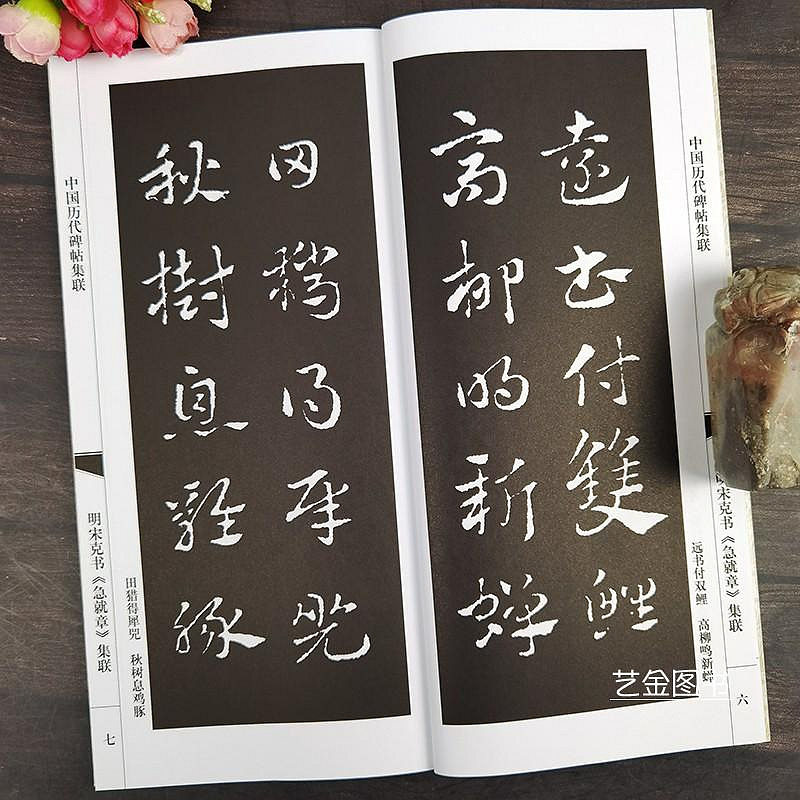 中国历代碑帖集联
遠书付雙鯉
高柳鸣新蟬
远书付双鲤 高柳鸣新蝉
明宋克书《急就章》集联
六
田猎得犀兕
秋樹息雞豚
田猎得犀兕 秋树息鸡豚
中国历代碑帖集联
明宋克书《急就章》集联
七
艺金图书